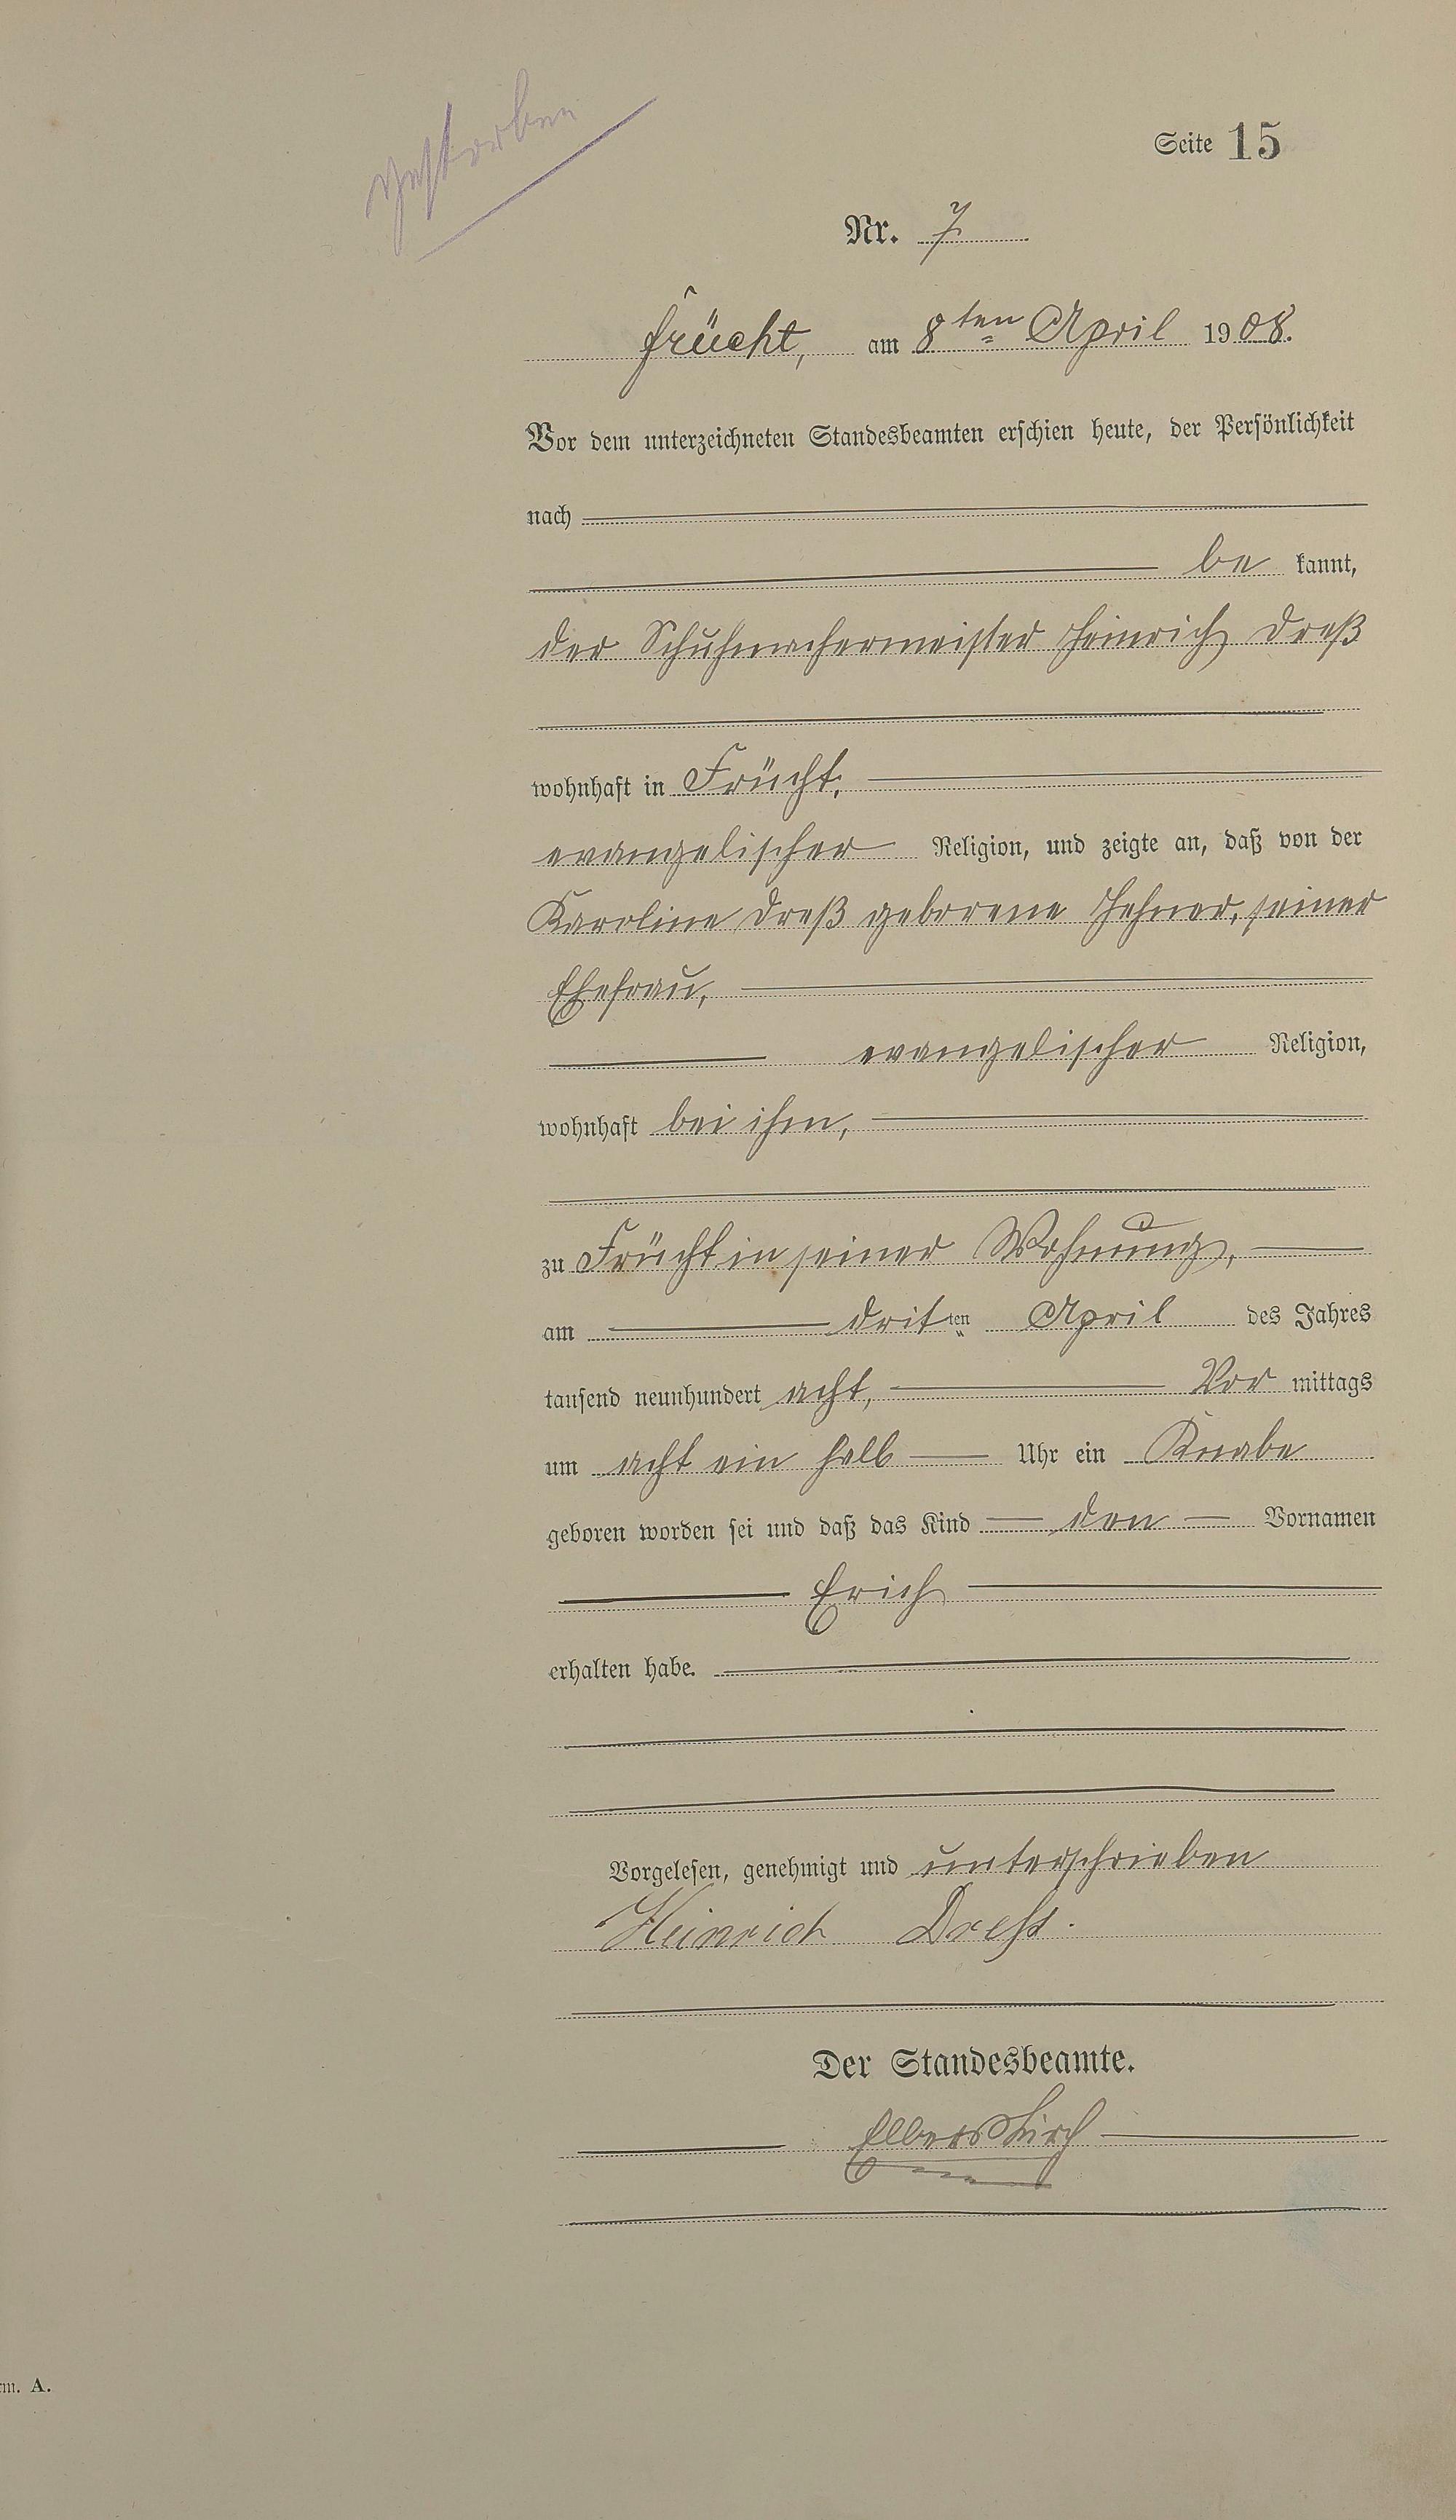 gestorben
Seite 15
Nr. 7
Frücht, am 8ten April 1908.
Vor dem unterzeichneten Standesbeamten erschien heute, der Persönlichkeit
nach
be kannt,
der Schuhmachermeister Heinrich Dreß
wohnhaft in Frücht,
evangelischer Religion, und zeigte an, daß von der
Karoline Dreß geborene Hehner, seiner
Ehefrau,
evangelischer Religion,
wohnhaft bei ihm,
zu Frücht in seiner Wohnung,
am dritten April des Jahres
tausend neunhundert acht, Vor mittags
um acht ein halb Uhr ein Knabe
geboren worden sei und daß das Kind den Vornamen
Erich
erhalten habe.
Vorgelesen, genehmigt und unterschrieben
Heinrich Dreß.
Der Standesbeamte.
Elberskirch
rm. A.